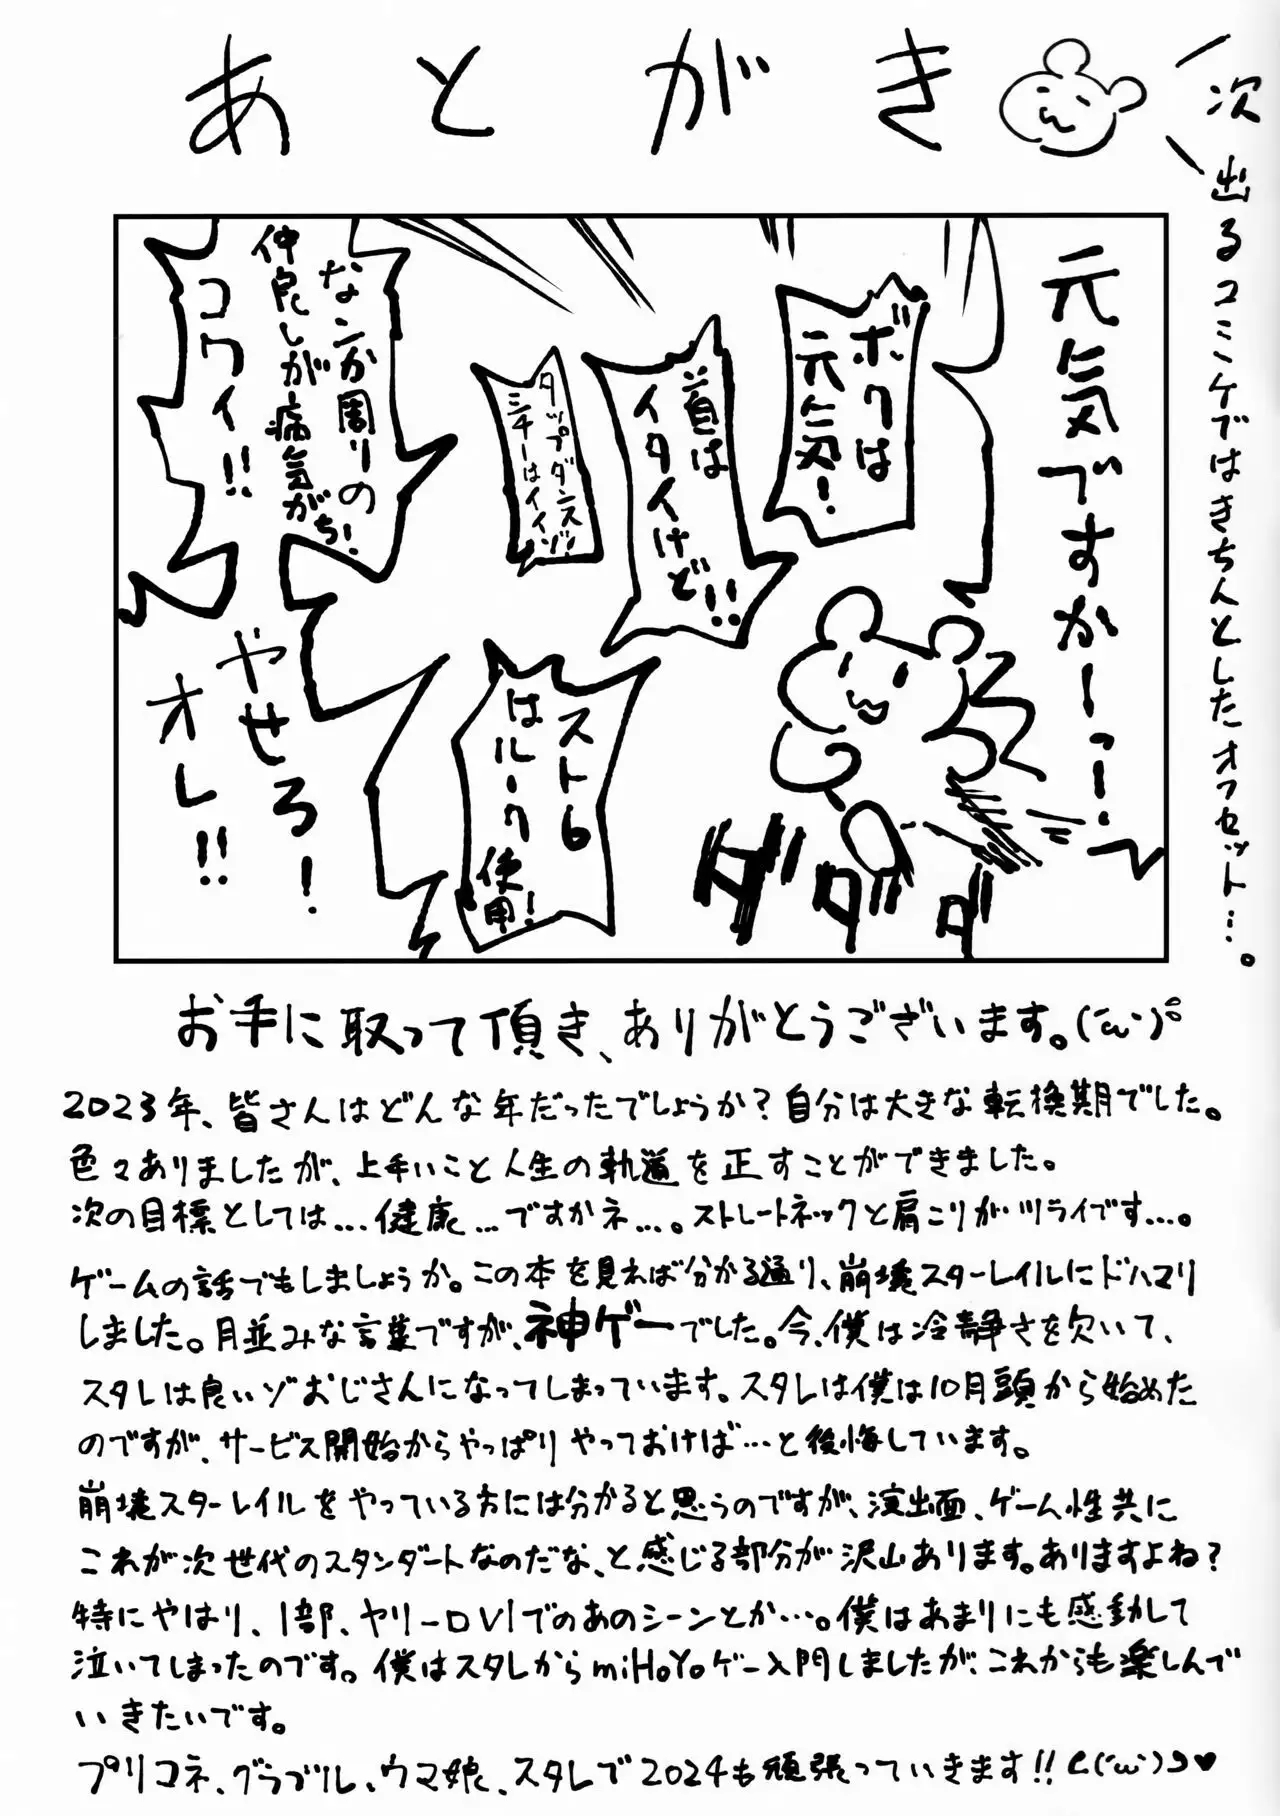 あとがき
次出るコミケではきちんとしたオフセット…。
元気ですかーっ!
ボクは
元気!
首は
イタイけど!!
タップダンス
シチーはイイゾ!
なンか周りの
仲良しが病気がち!
コワイ!!
スト6
はルーク
使用!
やせろ!
オレ!!
ダダダダ
お手に取って頂き、ありがとうございます。(´ω`)
2023年、皆さんはどんな年だったでしょうか?自分は大きな転換期でした。
色々ありましたが、上手いこと人生の軌道を正すことができました。
次の目標としては…健康…ですかネ…。ストレートネックと肩こりがツライです…。
ゲームの話でもしましょうか。この本を見れば分かる通り、崩壊スターレイルにドハマリ
しました。月並みな言葉ですが、神ゲーでした。今、僕は冷静さを欠いて、
スタレは良いゾおじさんになってしまっています。スタレは僕は10月頭から始めた
のですが、サービス開始からやっぱりやっておけば…と後悔しています。
崩壊スターレイルをやっている方には分かると思うのですが、演出面、ゲーム性共に
これが次世代のスタンダートなのだな、と感じる部分が沢山あります。ありますよね?
特にやはり、1部、ヤリーロVIでのあのシーンとか…。僕はあまりにも感動して
泣いてしまったのです。僕はスタレからmiHoYoゲー入門しましたが、これからも楽しんで
いきたいです。
プリコネ、グラブル、ウマ娘、スタレで2024も頑張っていきます!!⊂(´ω`)⊃♥